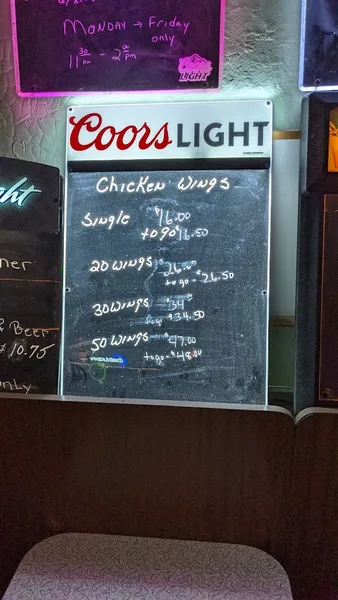 Monday → Friday
only
11 30 am - 2 00 pm
LIGHT
Coors LIGHT
Chicken Wings
Single $16.00
to go $16.50
20 Wings $26.00
to go - $26.50
30 Wings $34
to go $34.50
50 Wings $47.00
to go - $48.00
ht
ner
Beer
$10.75
only